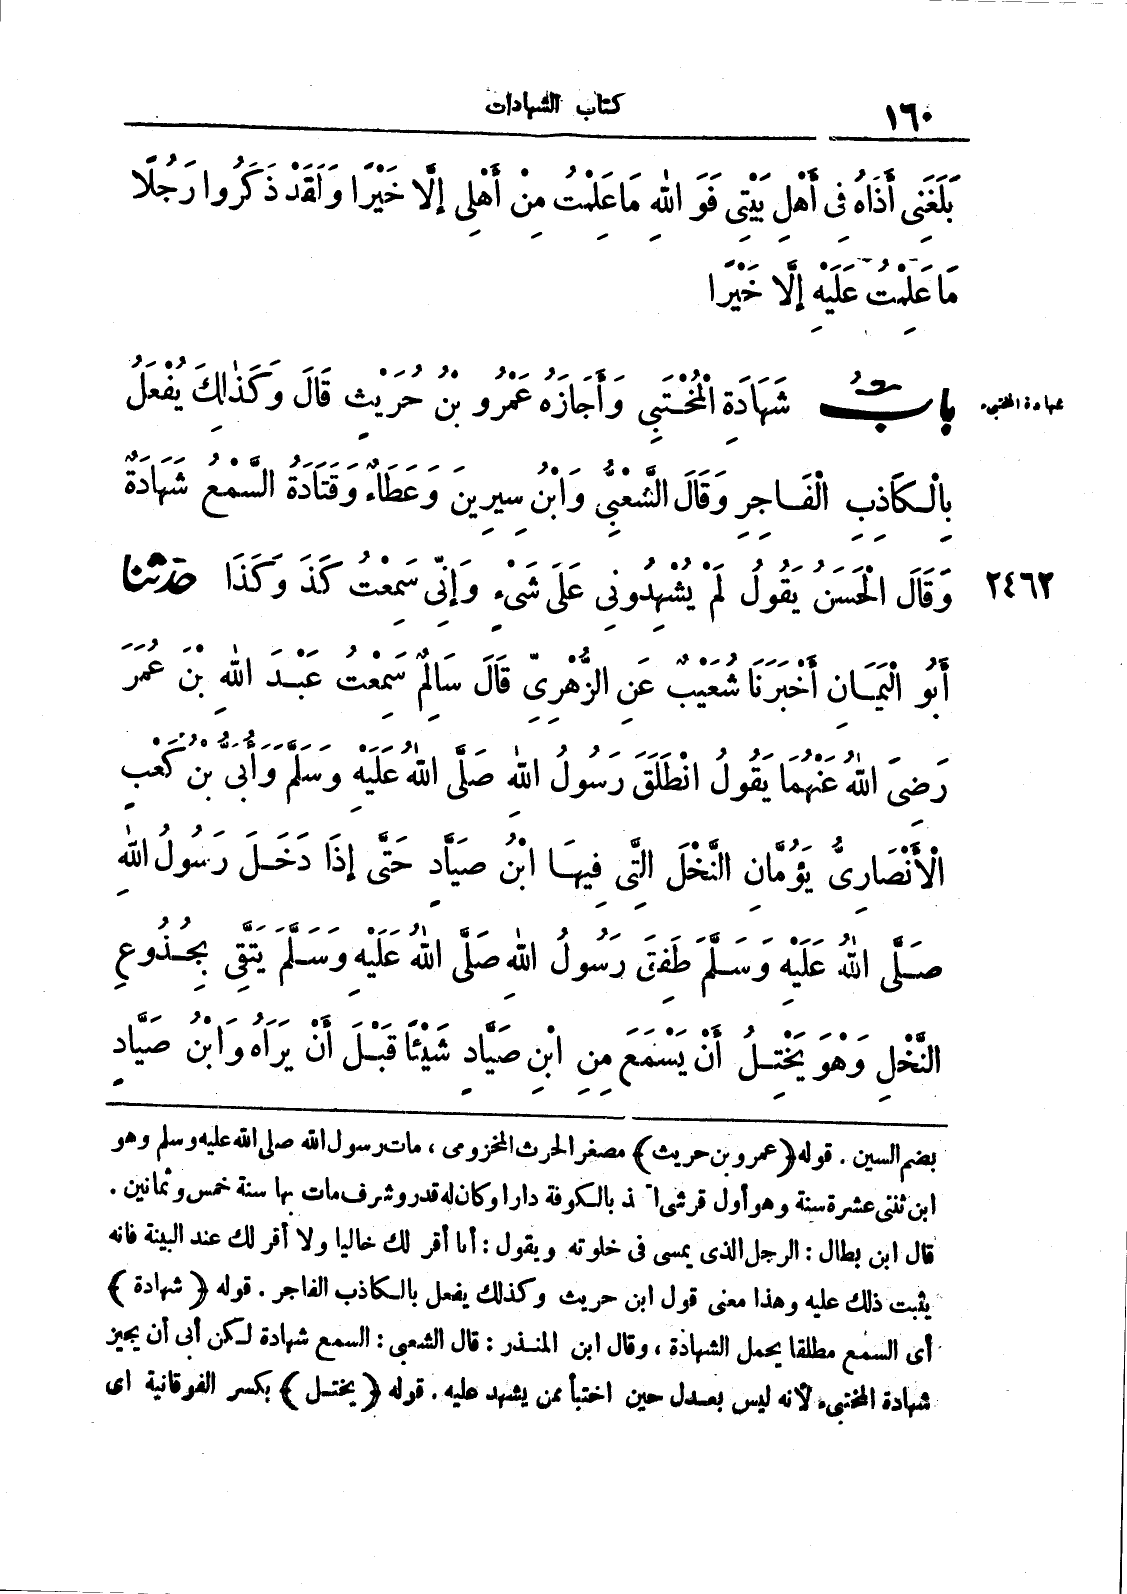 ١٦٠
كتاب الشهادات
بَلَغَنِي أَذَاهُ فِي أَهْلِ بَيْتِي فَوَ اللهِ مَا عَلِمْتُ مِنْ أَهْلِي إِلَّا خَيْرًا وَلَقَدْ ذَكَرُوا رَجُلًا
مَا عَلِمْتُ عَلَيْهِ إِلَّا خَيْرًا
شهادة المختبىء
بابُ شَهَادَةِ الْمُخْتَبِي وَأَجَازَهُ عَمْرُو بْنُ حُرَيْثٍ قَالَ وَكَذٰلِكَ يُفْعَلُ
بِالْكَاذِبِ الْفَاجِرِ وَقَالَ الشَّعْبِيُّ وَابْنُ سِيرِينَ وَعَطَاءٌ وَقَتَادَةُ السَّمْعُ شَهَادَةٌ
٢٤٦٢
وَقَالَ الْحَسَنُ يَقُولُ لَمْ يُشْهِدُونِي عَلَى شَيْءٍ وَإِنِّي سَمِعْتُ كَذَ وَكَذَا حَدَّثَنَا
أَبُو الْيَمَانِ أَخْبَرَنَا شُعَيْبٌ عَنِ الزُّهْرِيِّ قَالَ سَالِمٌ سَمِعْتُ عَبْدَ اللهِ بْنَ عُمَرَ
رَضِيَ اللهُ عَنْهُمَا يَقُولُ انْطَلَقَ رَسُولُ اللهِ صَلَّى اللهُ عَلَيْهِ وَسَلَّمَ وَأُبَيُّ بْنُ كَعْبٍ
الْأَنْصَارِيُّ يَؤُمَّانِ النَّخْلَ الَّتِي فِيهَا ابْنُ صَيَّادٍ حَتَّى إِذَا دَخَلَ رَسُولُ اللهِ
صَلَّى اللهُ عَلَيْهِ وَسَلَّمَ طَفِقَ رَسُولُ اللهِ صَلَّى اللهُ عَلَيْهِ وَسَلَّمَ يَتَّقِي بِجُذُوعِ
النَّخْلِ وَهْوَ يَخْتِلُ أَنْ يَسْمَعَ مِنِ ابْنِ صَيَّادٍ شَيْئًا قَبْلَ أَنْ يَرَاهُ وَابْنُ صَيَّادٍ
بضم السين . قوله ﴿عمرو بن حريث﴾ مصغر الحرث المخزومى ، مات رسول الله صلى الله عليه وسلم وهو
ابن ثنتى عشرة سنة وهو أول قرشى ا ذ بالكوفة دارا وكان له قدر وشرف مات بها سنة خمس وثمانين .
قال ابن بطال : الرجل الذى يمسى فى خلوته ويقول : أنا أقر لك خاليا ولا أقر لك عند البينة فانه
يثبت ذلك عليه وهذا معنى قول ابن حريث وكذلك يفعل بالكاذب الفاجر . قوله ﴿شهادة﴾
أى السمع مطلقا يحمل الشهادة ، وقال ابن المنذر : قال الشعبى : السمع شهادة لكن أبى أن يجيز
شهادة المختبىء لأنه ليس بعدل حين اختبأ ممن يشهد عليه . قوله ﴿يختل﴾ بكسر الفوقانية اى